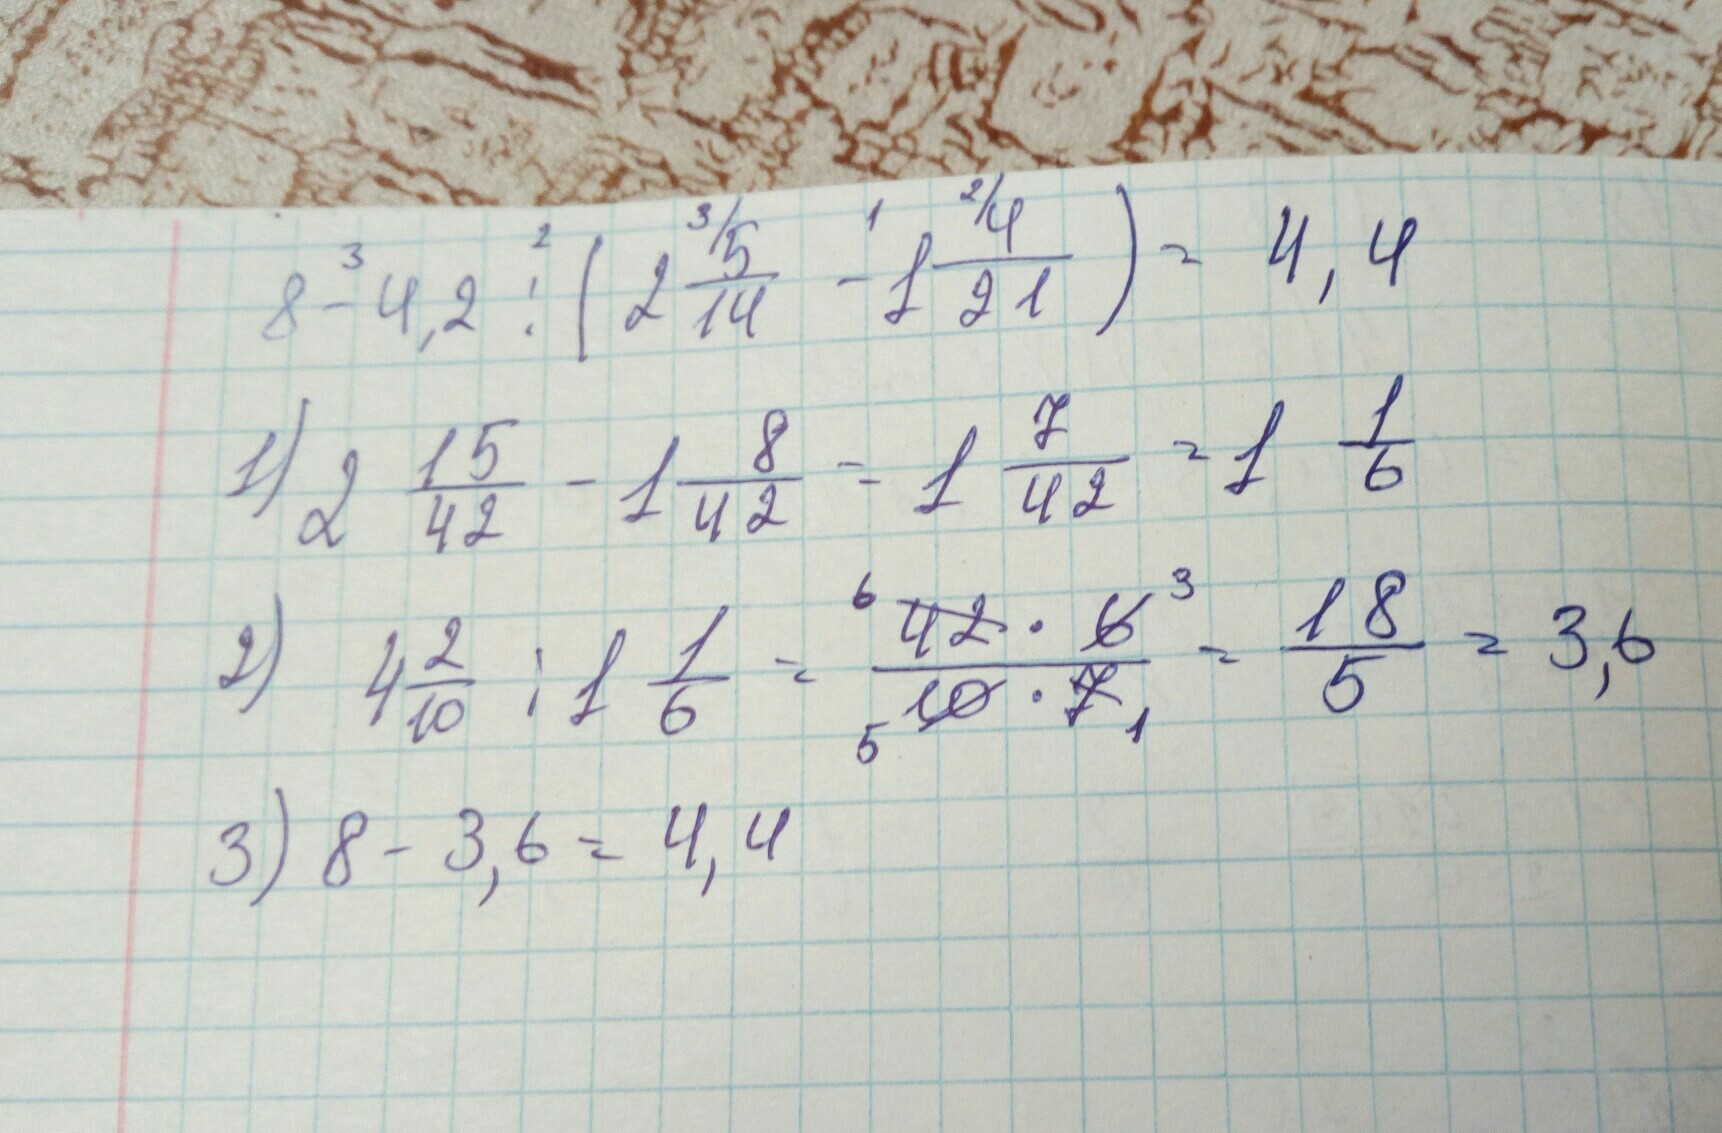 8 -³ 4,2 :² (2 ³/5/14 -¹ 1 ²/4/21) = 4,4
1) 2 15/42 - 1 8/42 = 1 7/42 = 1 1/6
2) 4 2/10 : 1 1/6 = ⁶42 · 6³ / ₅10 · 7₁ = 18/5 = 3,6
3) 8 - 3,6 = 4,4